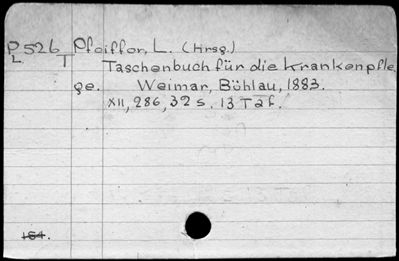 P 526 Pfeiffer, L. (Hrsg.)
L T
Taschenbuch für die Krankenpfle
ge. Weimar, Böhlau, 1883.
XII, 286, 32 S. 13 Taf.
184.